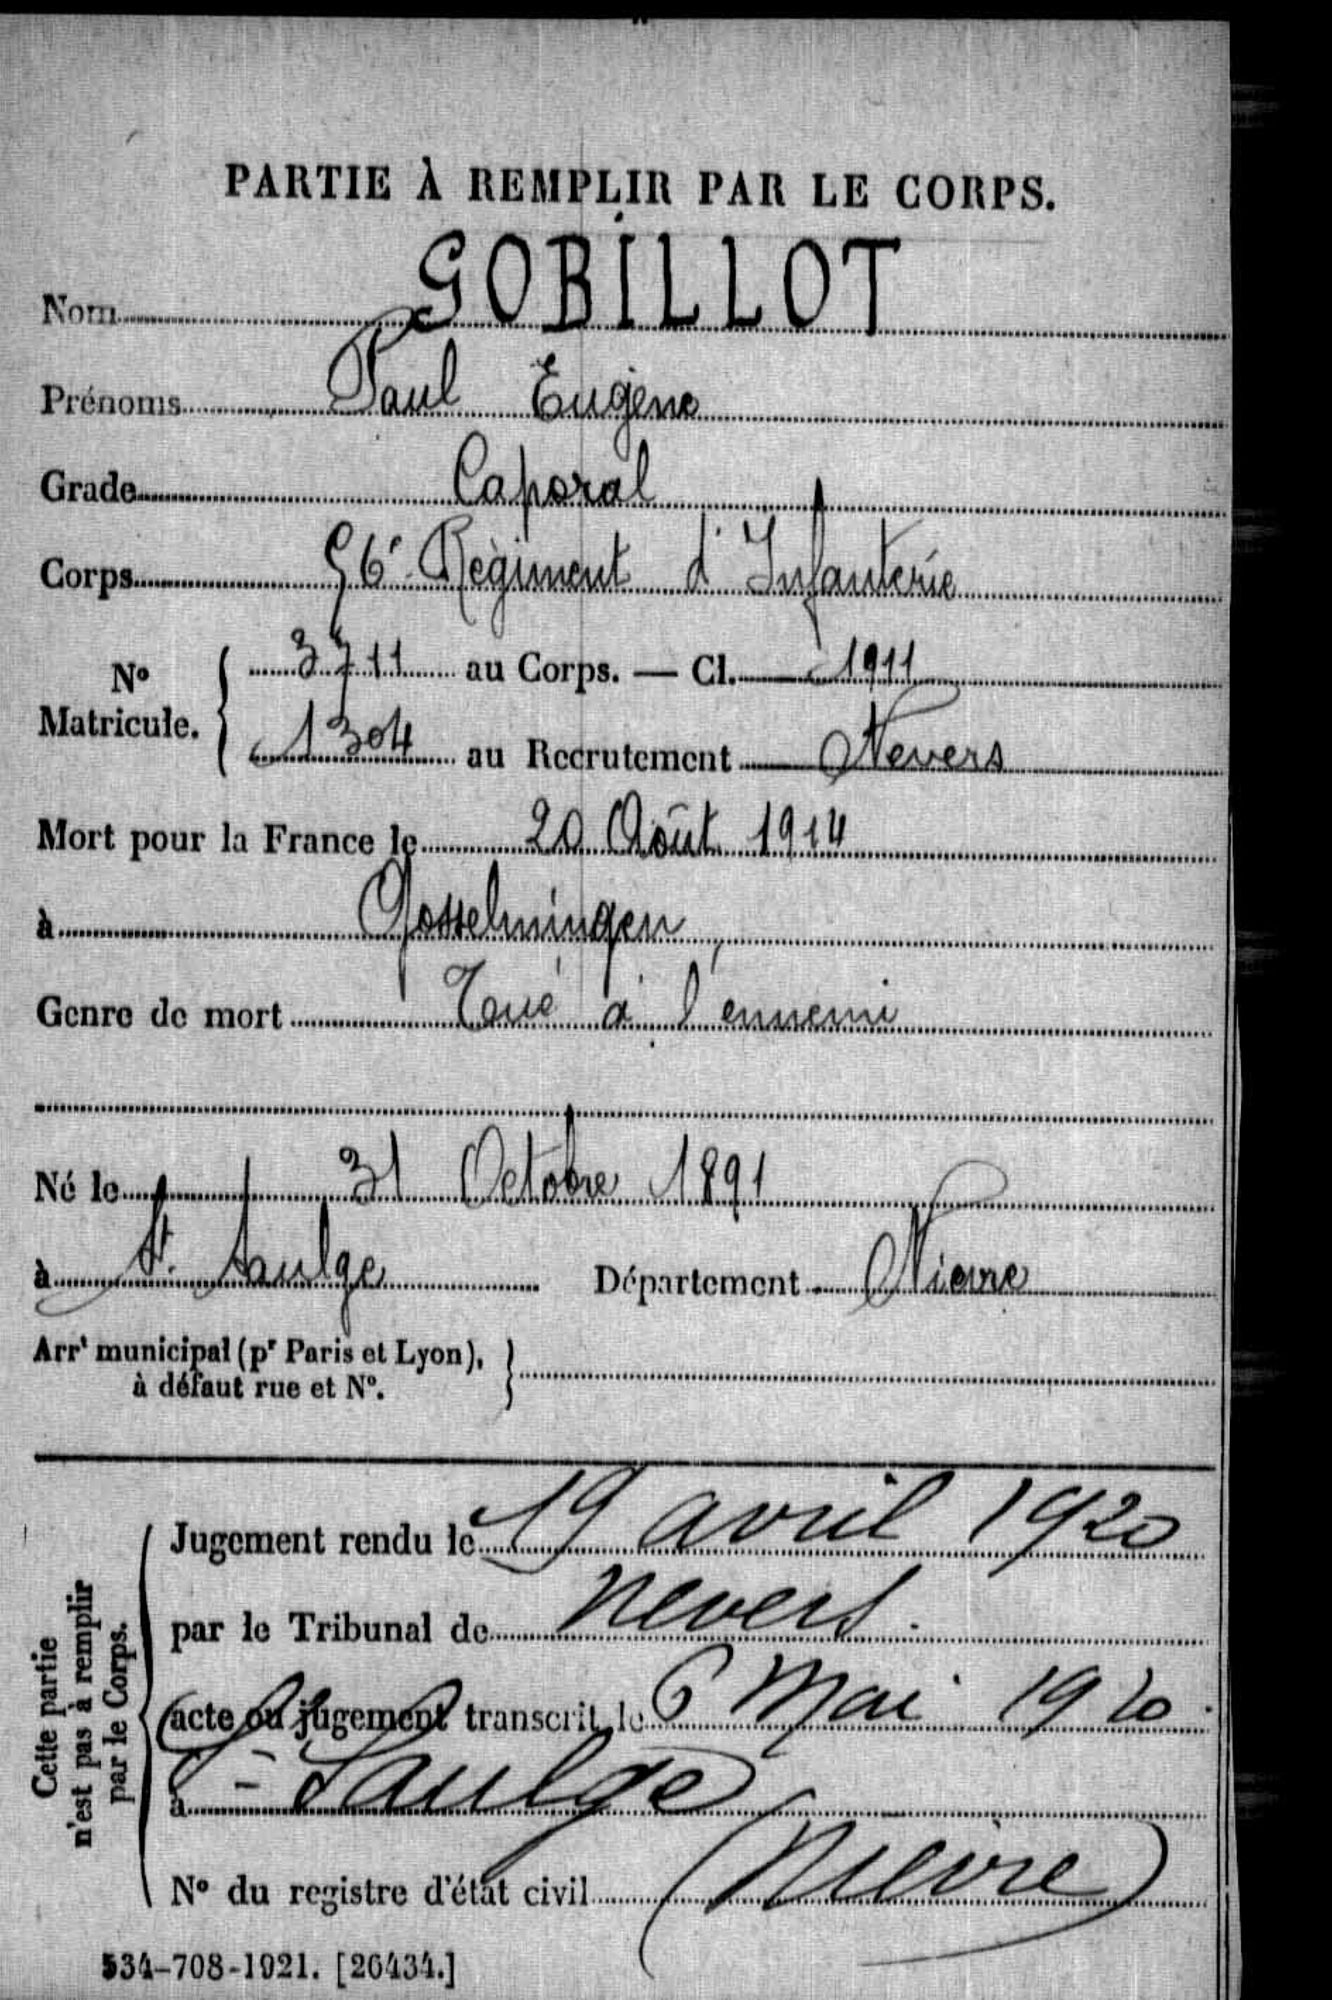 PARTIE À REMPLIR PAR LE CORPS.
Nom GOBILLOT
Prénoms Paul Eugène
Grade Caporal
Corps 56e Régiment d'Infanterie
No Matricule. { 3711 au Corps. — Cl. 1911
1304 au Recrutement Nevers
Mort pour la France le 20 Août 1914
à Gosselmingen
Genre de mort Tué à l'ennemi
Né le 31 Octobre 1891
à St. Saulge Département Nièvre
Arrt municipal (pr Paris et Lyon),
à défaut rue et No.
Cette partie
n'est pas à remplir
par le Corps.
Jugement rendu le 19 avril 1920
par le Tribunal de Nevers.
acte ou jugement transcrit le 6 Mai 1920.
à St-Saulge
No du registre d'état civil (Nièvre)
534-708-1921. [26434.]